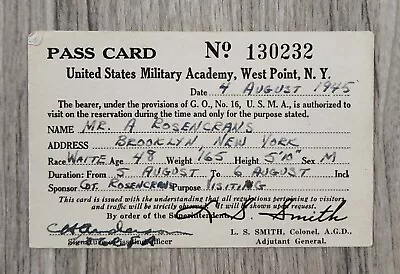 PASS CARD No 130232
United States Military Academy, West Point, N. Y.
Date 4 AUGUST 1945
The bearer, under the provisions of G. O., No. 16, U. S. M. A., is authorized to
visit on the reservation during the time and only for the purpose stated.
NAME MR. A ROSENCRANS
ADDRESS BROOKLYN, NEW YORK
Race WHITE Age 48 Weight 165 5'10" Sex M
Duration: From 5 AUGUST to 6 AUGUST Incl
Sponsor CDT. ROSENCRANS Purpose VISITING
This card is issued with the understanding that all regulations pertaining to visitors
and traffic will be strictly observed.
By order of the Superintendent:
L. S. Smith
Signature of issuing officer
L. S. SMITH, Colonel, A.G.D.
Adjutant General.